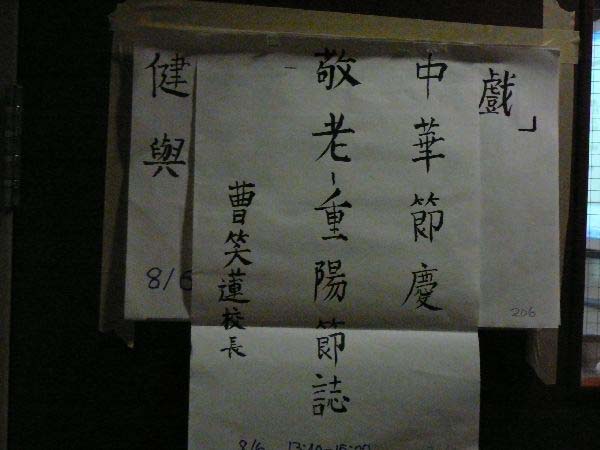 戲」
206
中華節慶
敬老-重陽節誌
曹笑蓮校長
8/6 13:40-15:00
健與
8/6